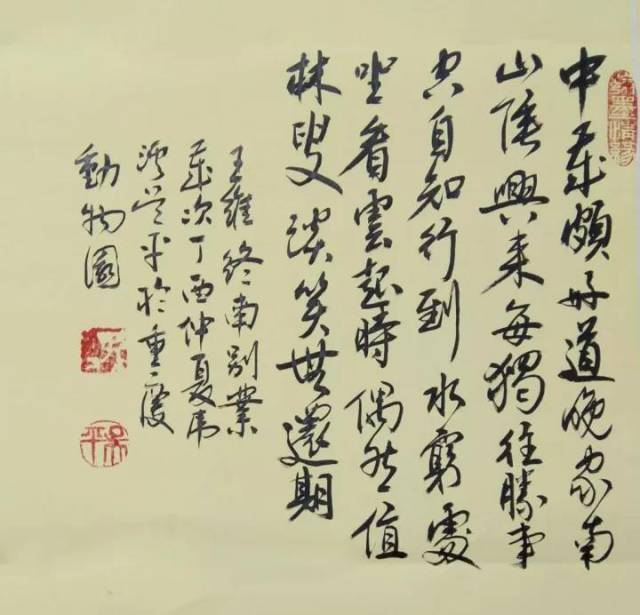 翰墨情緣
中歲頗好道晚家南
山陲興來每獨往勝事
空自知行到水窮處
坐看雲起時偶然值
林叟談笑無還期
王維終南別業
歲次丁酉仲夏
平於重慶
動物園
吳平